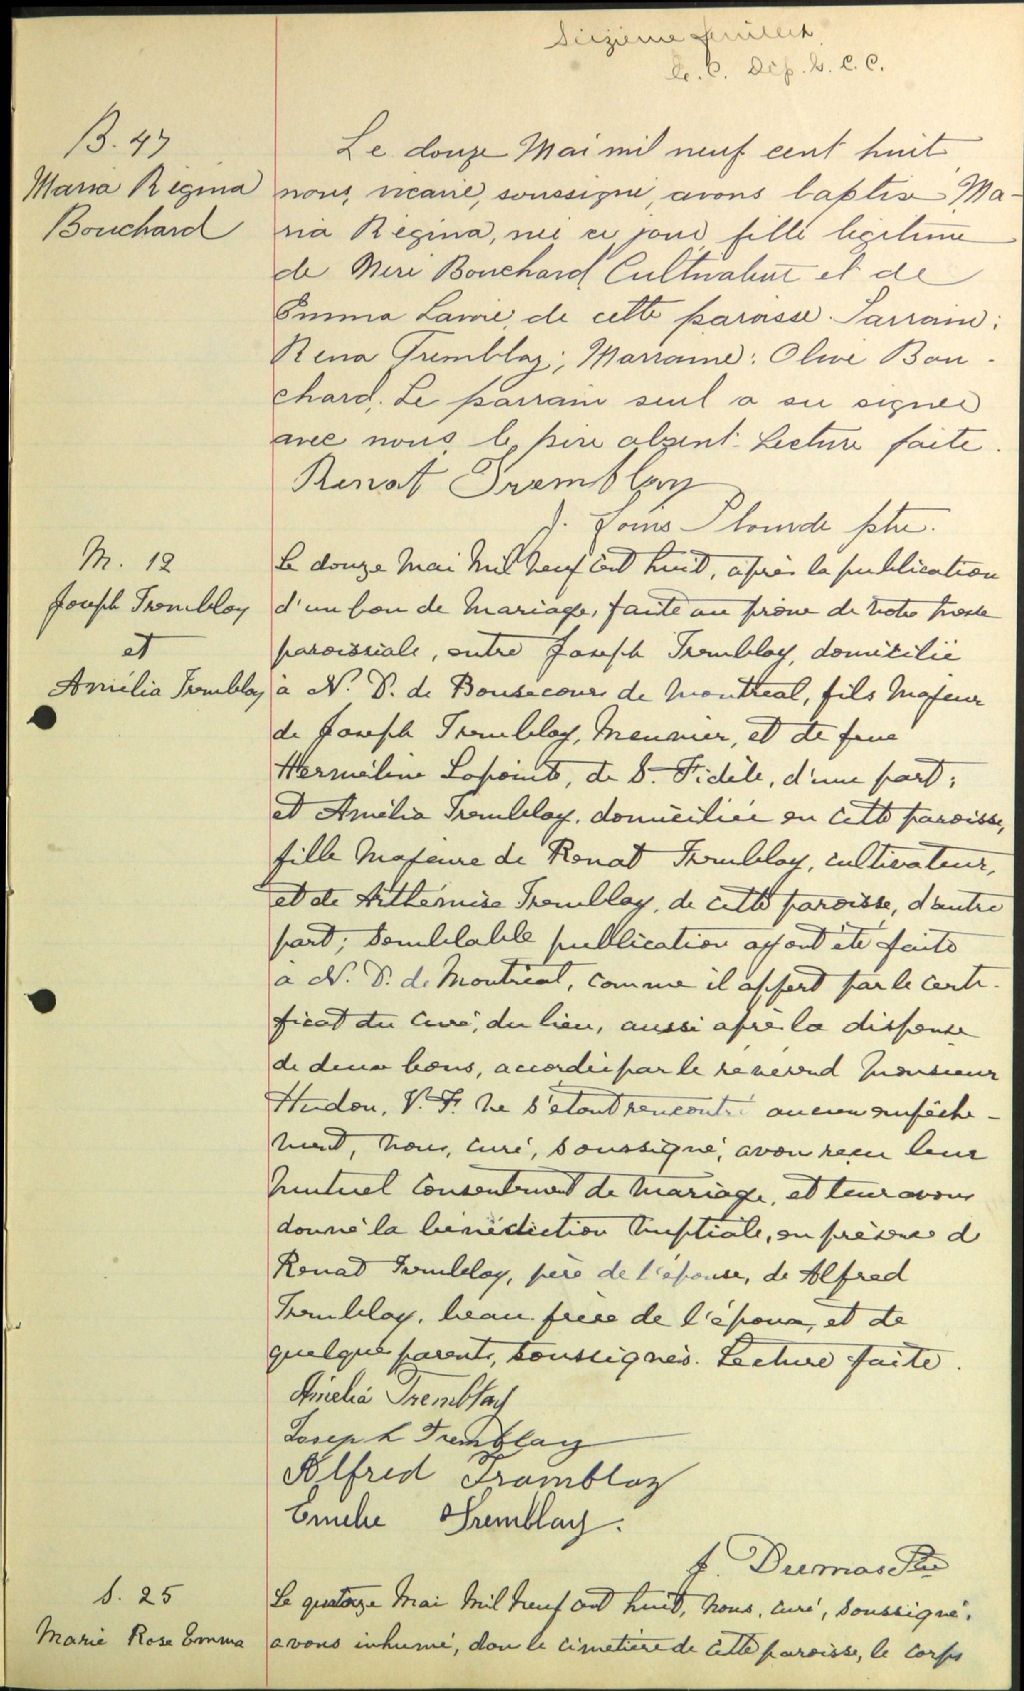 Seizième feuillet
C. Dép. G. C. C.
B. 47
Maria Régina
Bouchard
Le douze Mai mil neuf cent huit
nous, vicaire, soussigné, avons baptisé Ma-
ria Régina, née ce jour, fille légitime
de Néré Bouchard Cultivateur et de
Emma Lavoie de cette paroisse. Parrain:
Rena Tremblay; Marraine: Olive Bou-
chard; Le parrain seul a su signer
avec nous le père absent. Lecture faite.
Renat Tremblay
J. Louis Plourde ptre.
M. 12
Joseph Tremblay
et
Amélia Tremblay
Le douze Mai Mil Neuf Cent huit, après la publication
d'un ban de Mariage, faite au prône de notre messe
paroissiale, entre Joseph Tremblay, domicilié
à N. D. de Bonsecours de Montreal, fils Majeur
de Joseph Tremblay, Meunier, et de feue
Herméline Lapointe, de S. Fidèle, d'une part;
et Amélia Tremblay, domiciliée en cette paroisse,
fille Majeure de Renat Tremblay, cultivateur,
et de Arthémise Tremblay, de cette paroisse, d'autre
part; Semblable publication ayant été faite
à N. D. de Montréal, comme il appert par le certi-
ficat du curé, du lieu, aussi après la dispense
de deux bans, accordée par le révérend Monsieur
Hudon, V. F. Ne s'étant rencontré aucun empêche-
ment, Nous, curé, soussigné, avons reçu leur
Mutuel Consentement de Mariage, et leur avons
donné la bénédiction Nuptiale, en présence de
Renat Tremblay, père de l'épouse, de Alfred
Tremblay, beau-frère de l'époux, et de
quelques parents, soussignés. Lecture faite.
Amélia Tremblay
Joseph Tremblay
Alfred Tramblay
Emelie Tremblay.
J. Dumas Ptre
S. 25
Marie Rose Emma
Le quatorze Mai Mil Neuf cent huit, Nous, curé, soussigné,
avons inhumé, dans le cimetière de cette paroisse, le corps